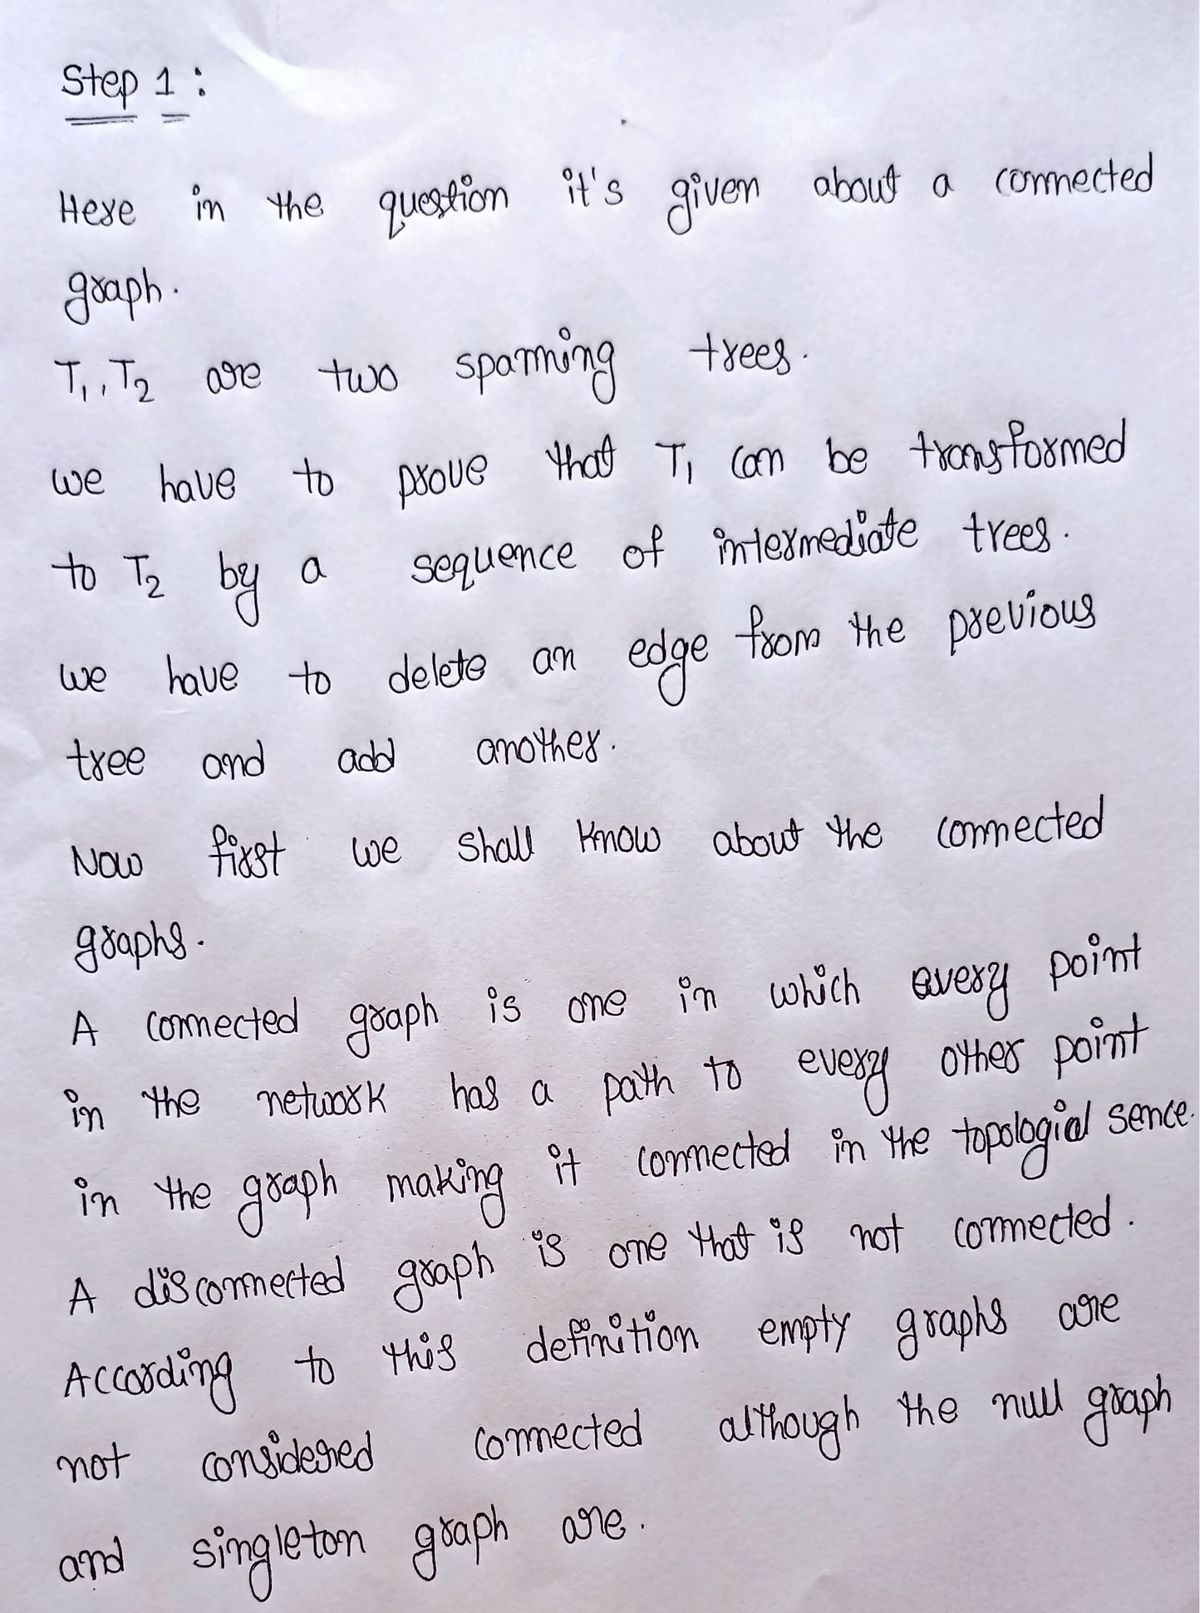 Step 1 :
Here in the question it's given about a connected
graph.
T₁, T₂ are two spanning trees.
we have to prove that T₁ can be transformed
to T₂ by a sequence of intermediate trees.
we have to delete an edge from the previous
tree and add another.
Now first we shall know about the connected
graphs.
A connected graph is one in which every point
in the network has a path to every other point
in the graph making it connected in the topologial sence.
A disconnected graph is one that is not connected.
According to this definition empty graphs are
not considered connected although the null graph
and singleton graph are.